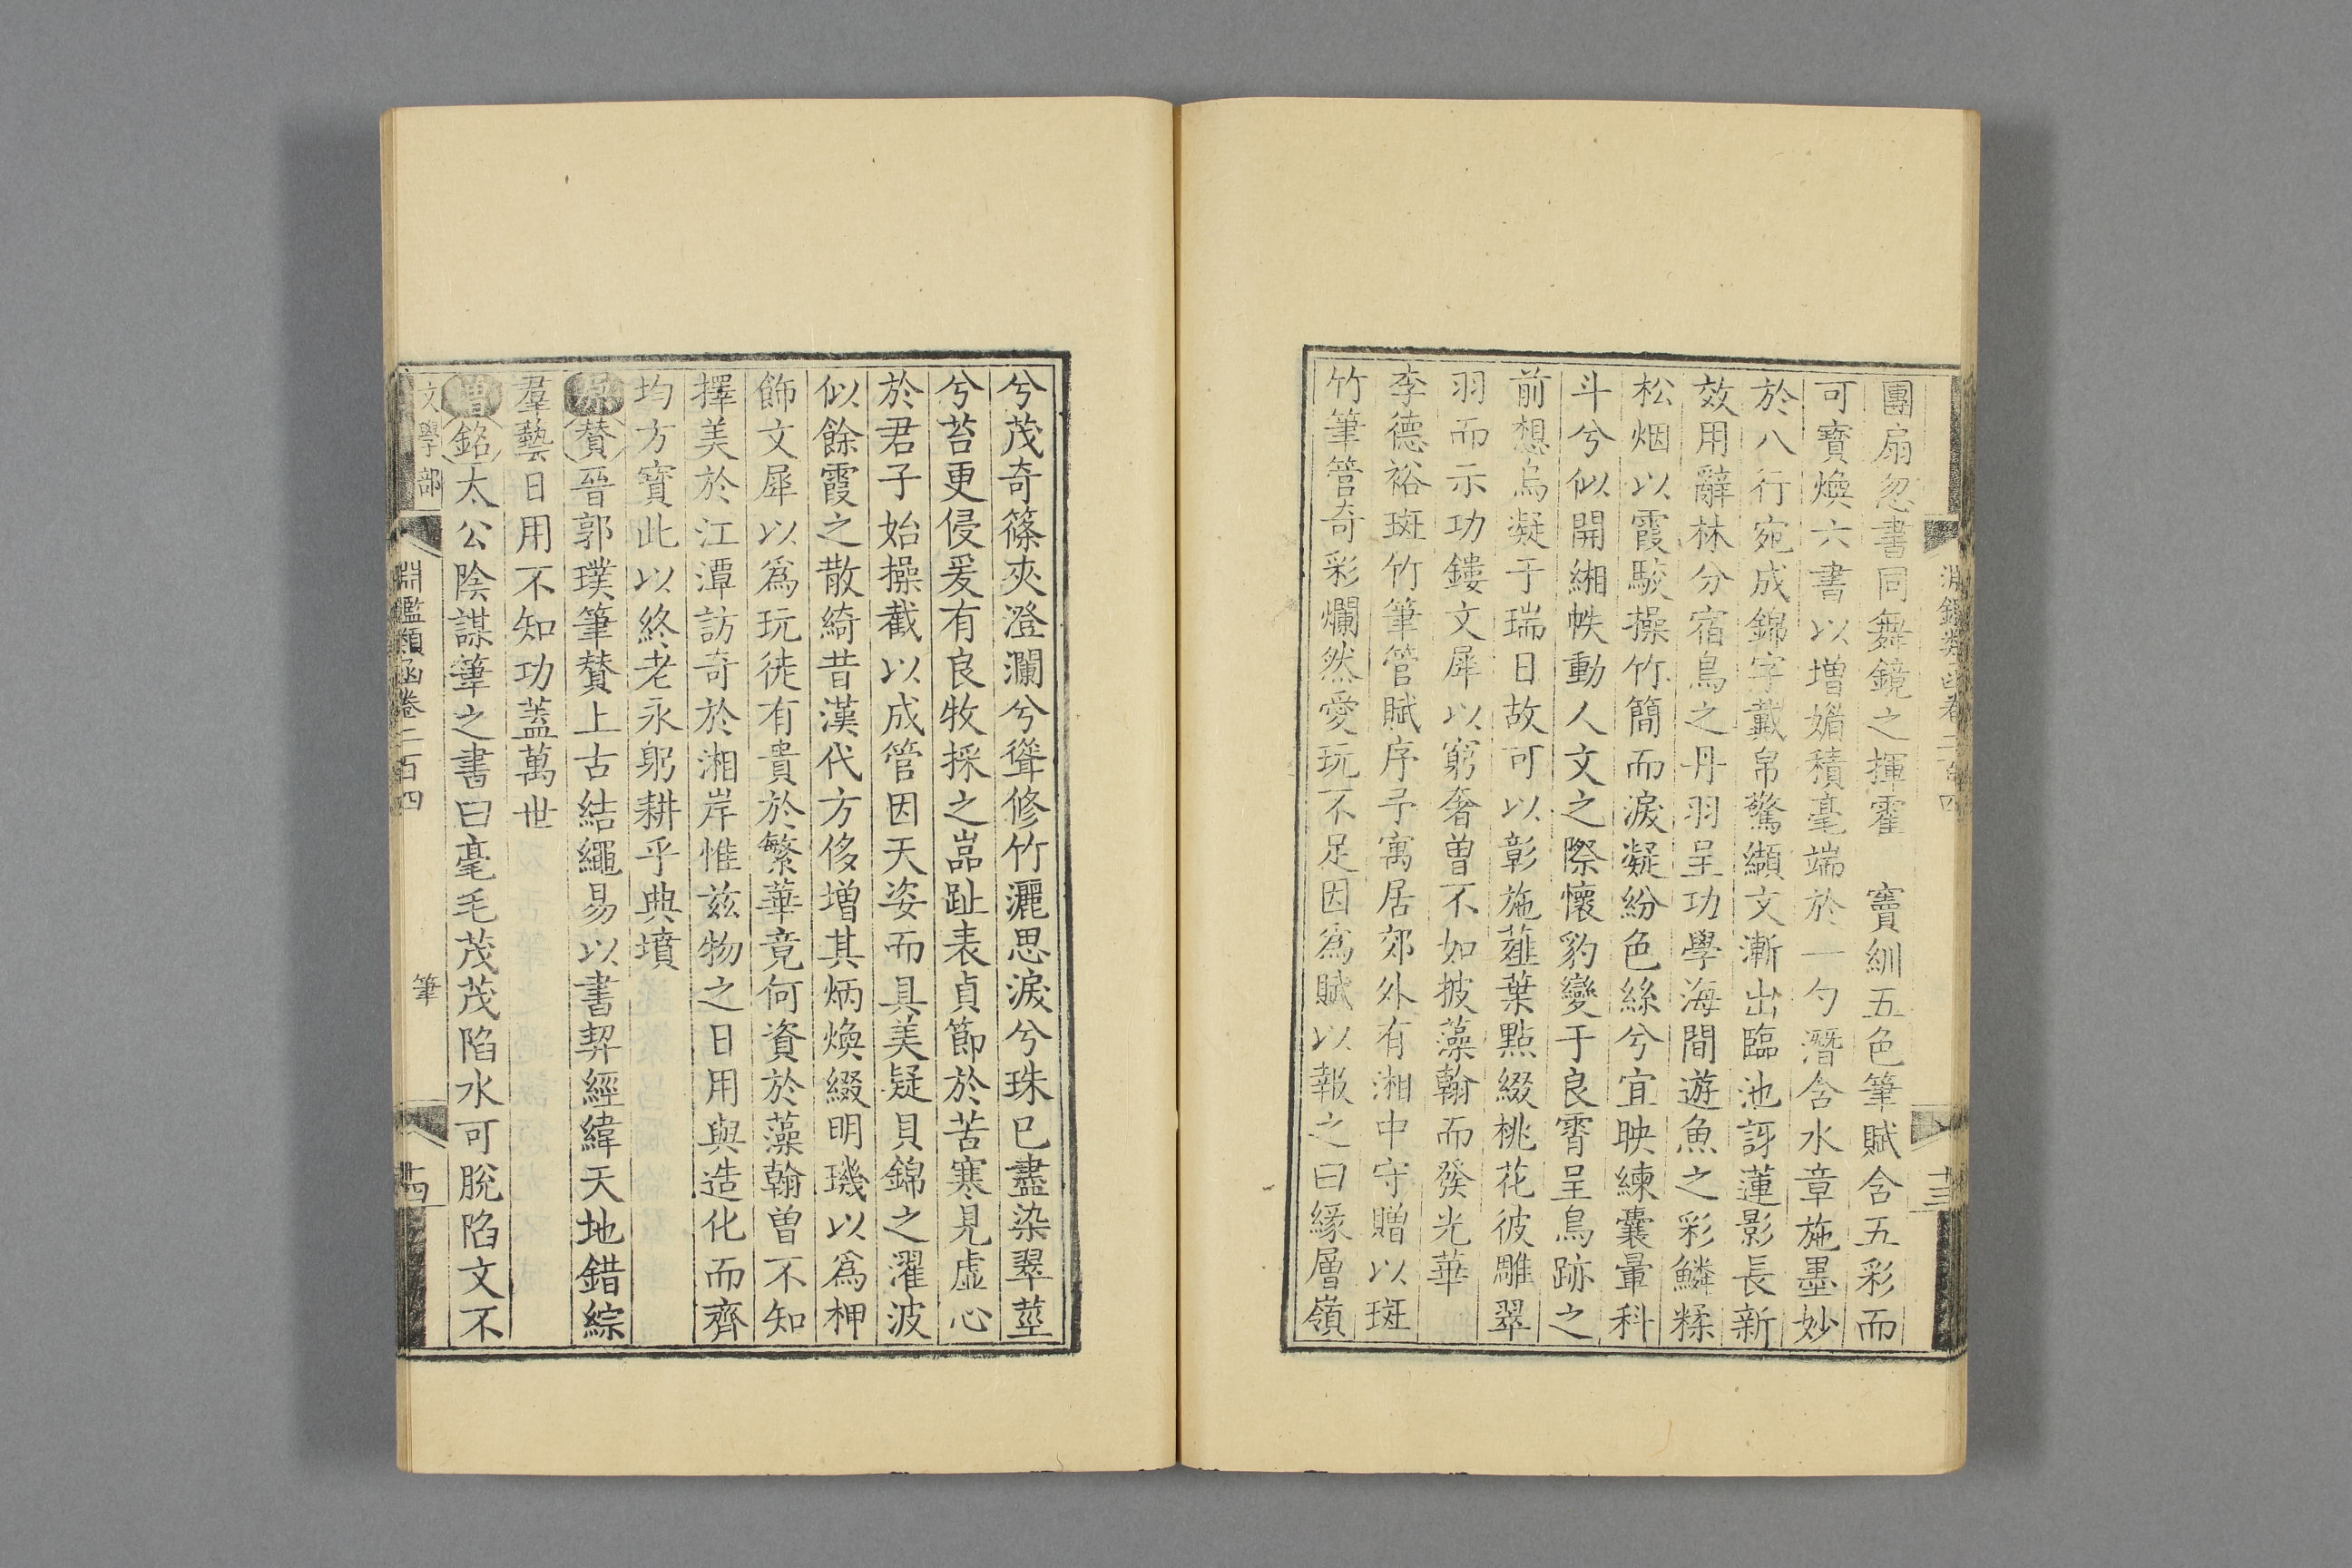 團扇忽書同舞鏡之揮霍　竇紃五色筆賦含五彩而
可寶煥六書以增媚積毫端於一勺潛含水章施墨妙
於八行宛成錦字戴帛驚纈文漸出臨池訝蓮影長新
效用辭林分宿鳥之丹羽呈功學海間遊魚之彩鱗糅
松烟以霞駮操竹簡而淚凝紛色絲兮宜映練囊暈科
斗兮似開緗帙動人文之際懷豹變于良霄呈鳥跡之
前想烏凝于瑞日故可以彰施薤葉點綴桃花彼雕翠
羽而示功鏤文犀以窮奢曾不如披藻翰而發光華
李德裕斑竹筆管賦序予寓居郊外有湘中守贈以斑
竹筆管奇彩爛然愛玩不足因爲賦以報之曰緣層嶺
淵鑑類函卷二百四
十三
兮茂奇篠夾澄瀾兮聳修竹灑思淚兮珠已盡染翠莖
兮苔更侵爰有良牧採之嵓趾表貞節於苦寒見虛心
於君子始操截以成管因天姿而具美疑貝錦之濯波
似餘霞之散綺昔漢代方侈增其炳煥綴明璣以爲柙
飾文犀以爲玩徒有貴於繁華竟何資於藻翰曾不知
擇美於江潭訪奇於湘岸惟玆物之日用與造化而齊
均方寶此以終老永躬耕乎典墳
原贊晉郭璞筆贊上古結繩易以書契經緯天地錯綜
羣藝日用不知功蓋萬世
增銘太公陰謀筆之書曰毫毛茂茂陷水可脫陷文不
文學部
淵鑑類函卷二百四
筆
十四